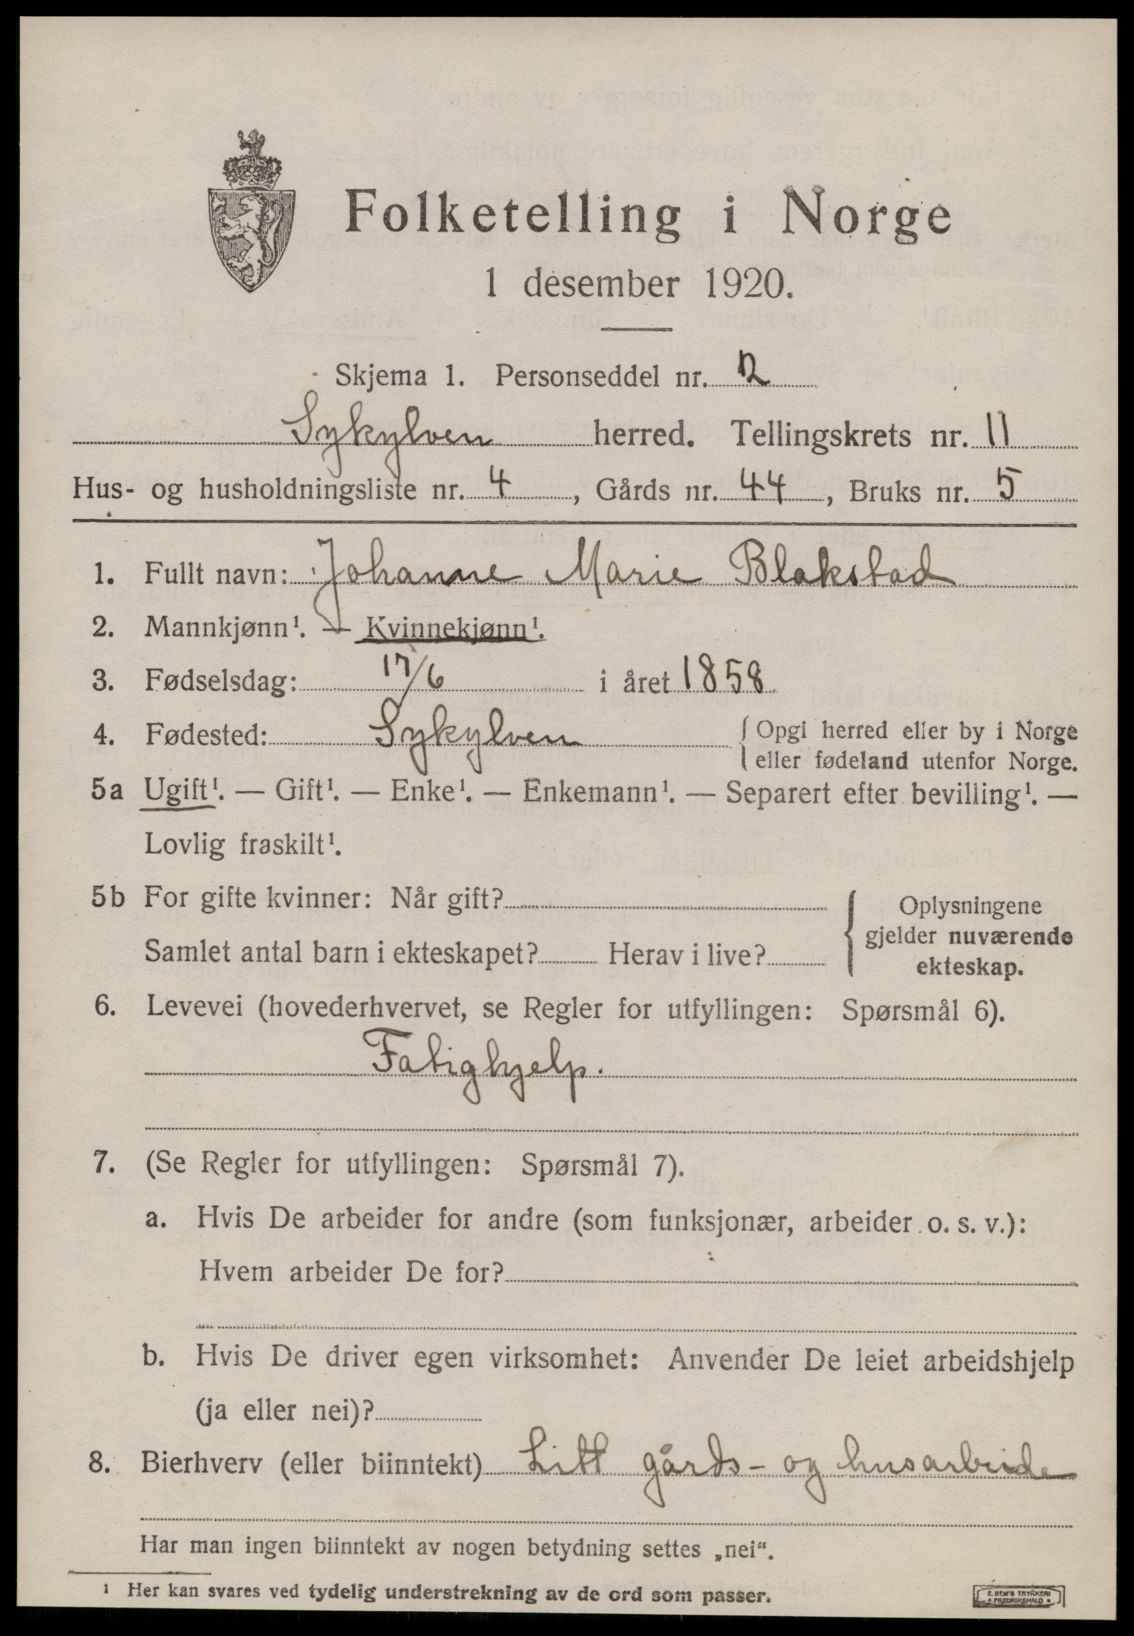 Folketelling i Norge
1 desember 1920.
Skjema 1. Personseddel nr. 2
Sykylven herred. Tellingskrets nr. 11
Hus- og husholdningsliste nr. 4, Gårds nr. 44, Bruks nr. 5
1. Fullt navn: Johanne Marie Blakstad
2. Mannkjønn¹. — Kvinnekjønn¹.
3. Fødselsdag: 17/6 i året 1858
4. Fødested: Sykylven { Opgi herred eller by i Norge
eller fødeland utenfor Norge.
5a Ugift¹. — Gift¹. — Enke¹. — Enkemann¹. — Separert efter bevilling¹. —
Lovlig fraskilt¹.
5b For gifte kvinner: Når gift?
Samlet antal barn i ekteskapet? Herav i live?
{ Oplysningene
gjelder nuværende
ekteskap.
6. Levevei (hovederhvervet, se Regler for utfyllingen: Spørsmål 6).
Fatighjelp.
7. (Se Regler for utfyllingen: Spørsmål 7).
a. Hvis De arbeider for andre (som funksjonær, arbeider o. s. v.):
Hvem arbeider De for?
b. Hvis De driver egen virksomhet: Anvender De leiet arbeidshjelp
(ja eller nei)?
8. Bierhverv (eller biinntekt) Litt gårds- og husarbeide
Har man ingen biinntekt av nogen betydning settes „nei“.
¹ Her kan svares ved tydelig understrekning av de ord som passer.
E. SEM'S TRYKKERI
• FREDRIKSHALD •